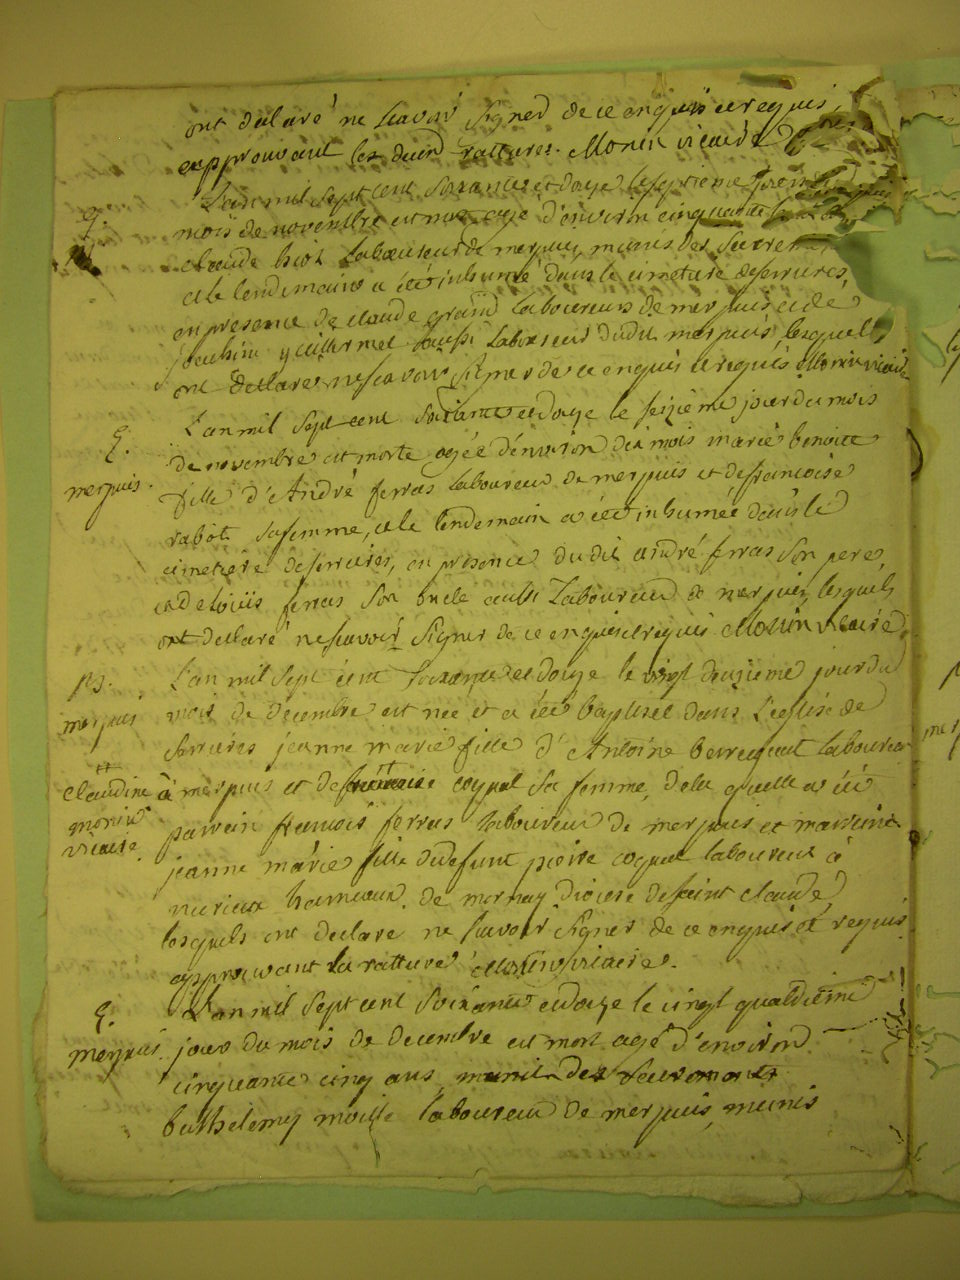 ont declaré ne scavoir signer de ce enquis et requis,
approuvant les deux rattures. Monin vicaire
L'an mil sept cent soixante et doze le septieme jour du
S.
mois de novembre est mort agé d'environ cinquante
claude laboureur de merpuis, munis des sacrem
et le lendemain a été inhumé dans le cimetiere de serrieres,
en presence de claude grand laboureur de merpuis et de
joachim guillermet aussi laboureur dudit merpuis, lesquels
ont declaré ne scavoir signer de ce enquis et requis Monin vicaire
L'an mil sept cent soixante et doze le seizieme jour du mois
S.
de novembre est morte agée d'environ dix mois marie benoitte
merpuis.
fille d'André ferras laboureur de merpuis et de francoise
rabot sa femme, et le lendemain a été inhumée dans le
cimetiere de serrieres, en presence dudit andré ferras son pere,
et de loüis ferras son oncle aussi laboureur de merpuis, lesquels
ont declaré ne scavoir signer de ce enquis et requis Monin vicaire.
L'an mil sept cent soixante et doze le vingt deuzieme jour du
merpuis
mois de decembre est née et a été baptisée dans l'eglise de
serrieres jeanne marie fille d'Antoine laboureur
claudine
à merpuis et de coquet sa femme, de la quelle a été
monin
vicaire.
parrein francois ferras laboureur de merpuis et marreine
jeanne marie fille du defunt pierre coquet laboureur à
nurieux hameaux de mornay diocese de saint claude,
lesquels ont declaré ne scavoir signer de ce enquis et requis
approuvant la ratture Monin vicaire.
L'an mil sept cent soixante et doze le vingt quatrieme
S.
merpuis.
jour du mois de decembre est mort agé d'environ
cinquante cinq ans, munis des sacrements
barthelemy laboureur de merpuis, munis